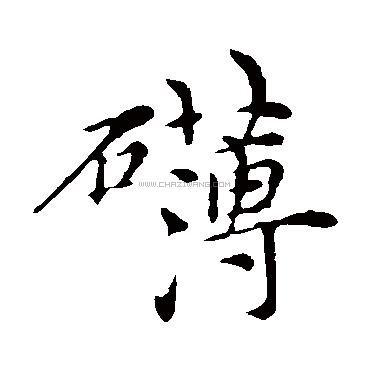 礴
WWW.CHAZIWANG.COM